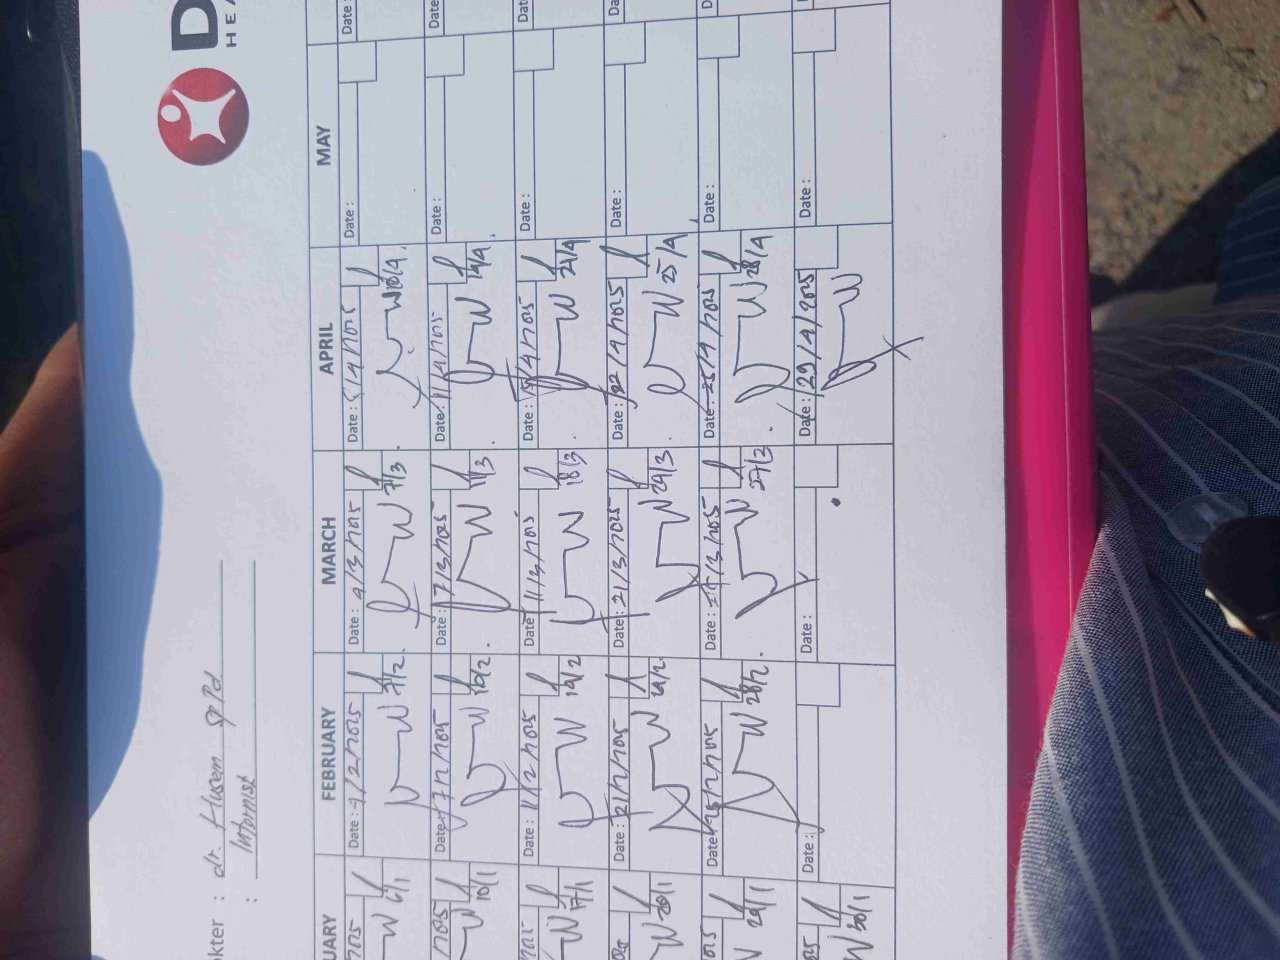 D
HEA
okter : dr. Husem SpPd
: Internist
UARY FEBRUARY MARCH APRIL MAY
Date : 4/2/2025 Date : 4/3/2025 Date : Date :
7/2. 7/3.
6/1
Date : 7/2/2025 Date : 7/3/2025 Date : 11/4/2025 Date :
10/1 10/2. 11/3 14/4.
Date : 11/2/2025 Date : 11/3/2025 Date : Date :
17/1 14/2 18/3. 21/4
Date : 21/2/2025 Date : 21/3/2025 Date : 22/4/2025 Date :
20/1 24/3. 25/4
Date : 25/2/2025 Date : 25/3/2025 Date : 25/4/2025 Date :
24/1 28/2. 28/4
Date : Date : Date : 29/4/2025 Date :
30/1